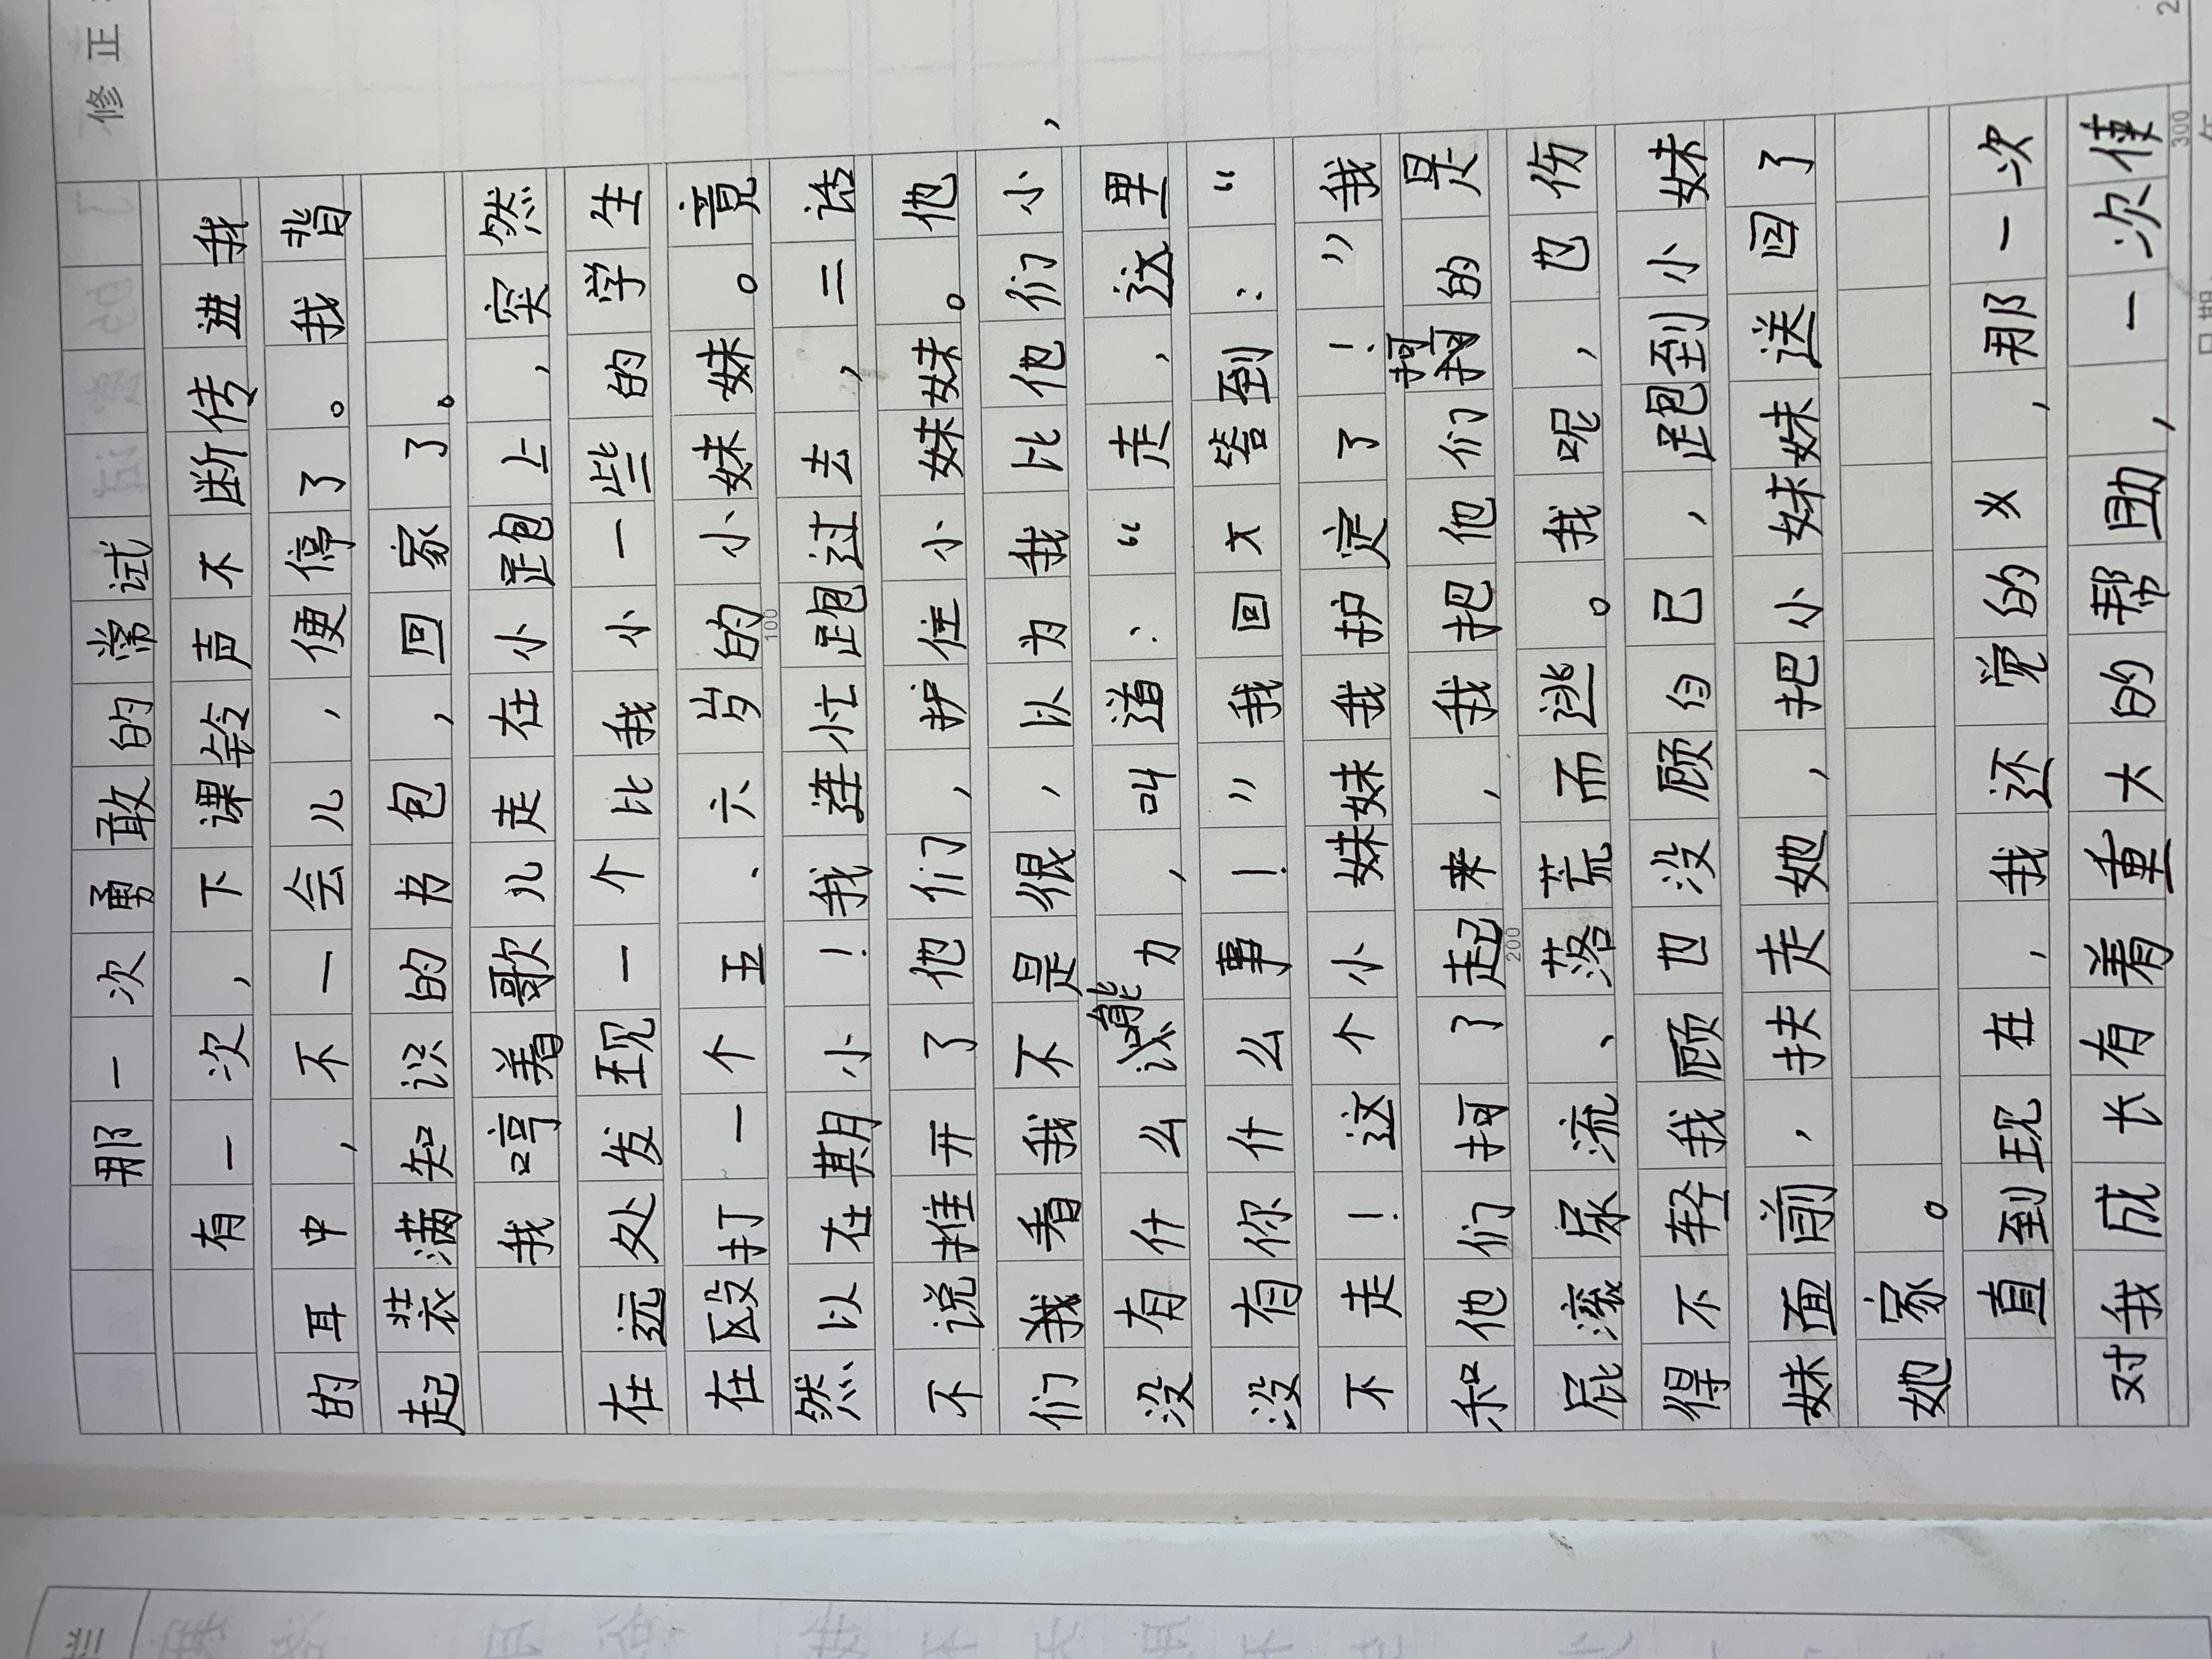 修正
那一次勇敢的常试
有一次，下课铃声不断传进我
的耳中，不一会儿，便停了。我背
起装满知识的书包，回家了。
我哼着歌儿走在小跑上，突然
在远处发现一个比我小一些的学生
在殴打一个五、六岁的小妹妹。竟
然以在期小！我连忙跑过去，二话
不说推开了他们，护住小妹妹。他
们我看我不是很，以为我比他们小，
没有什么能力，叫道：“走，这里
没有你什么事！”我回大答到：“
不走！这个小妹妹我护定了！”我
和他们打了起来，我把他们打的是
屁滚尿流、落荒而逃。我呢，也伤
得不轻我顾也没顾自己，跑到小妹
妹面前，扶走她，把小妹妹送回了
她家。
直到现在，我还觉的义，那一次
对我成长有着重大的帮助，一次使
100
200
300